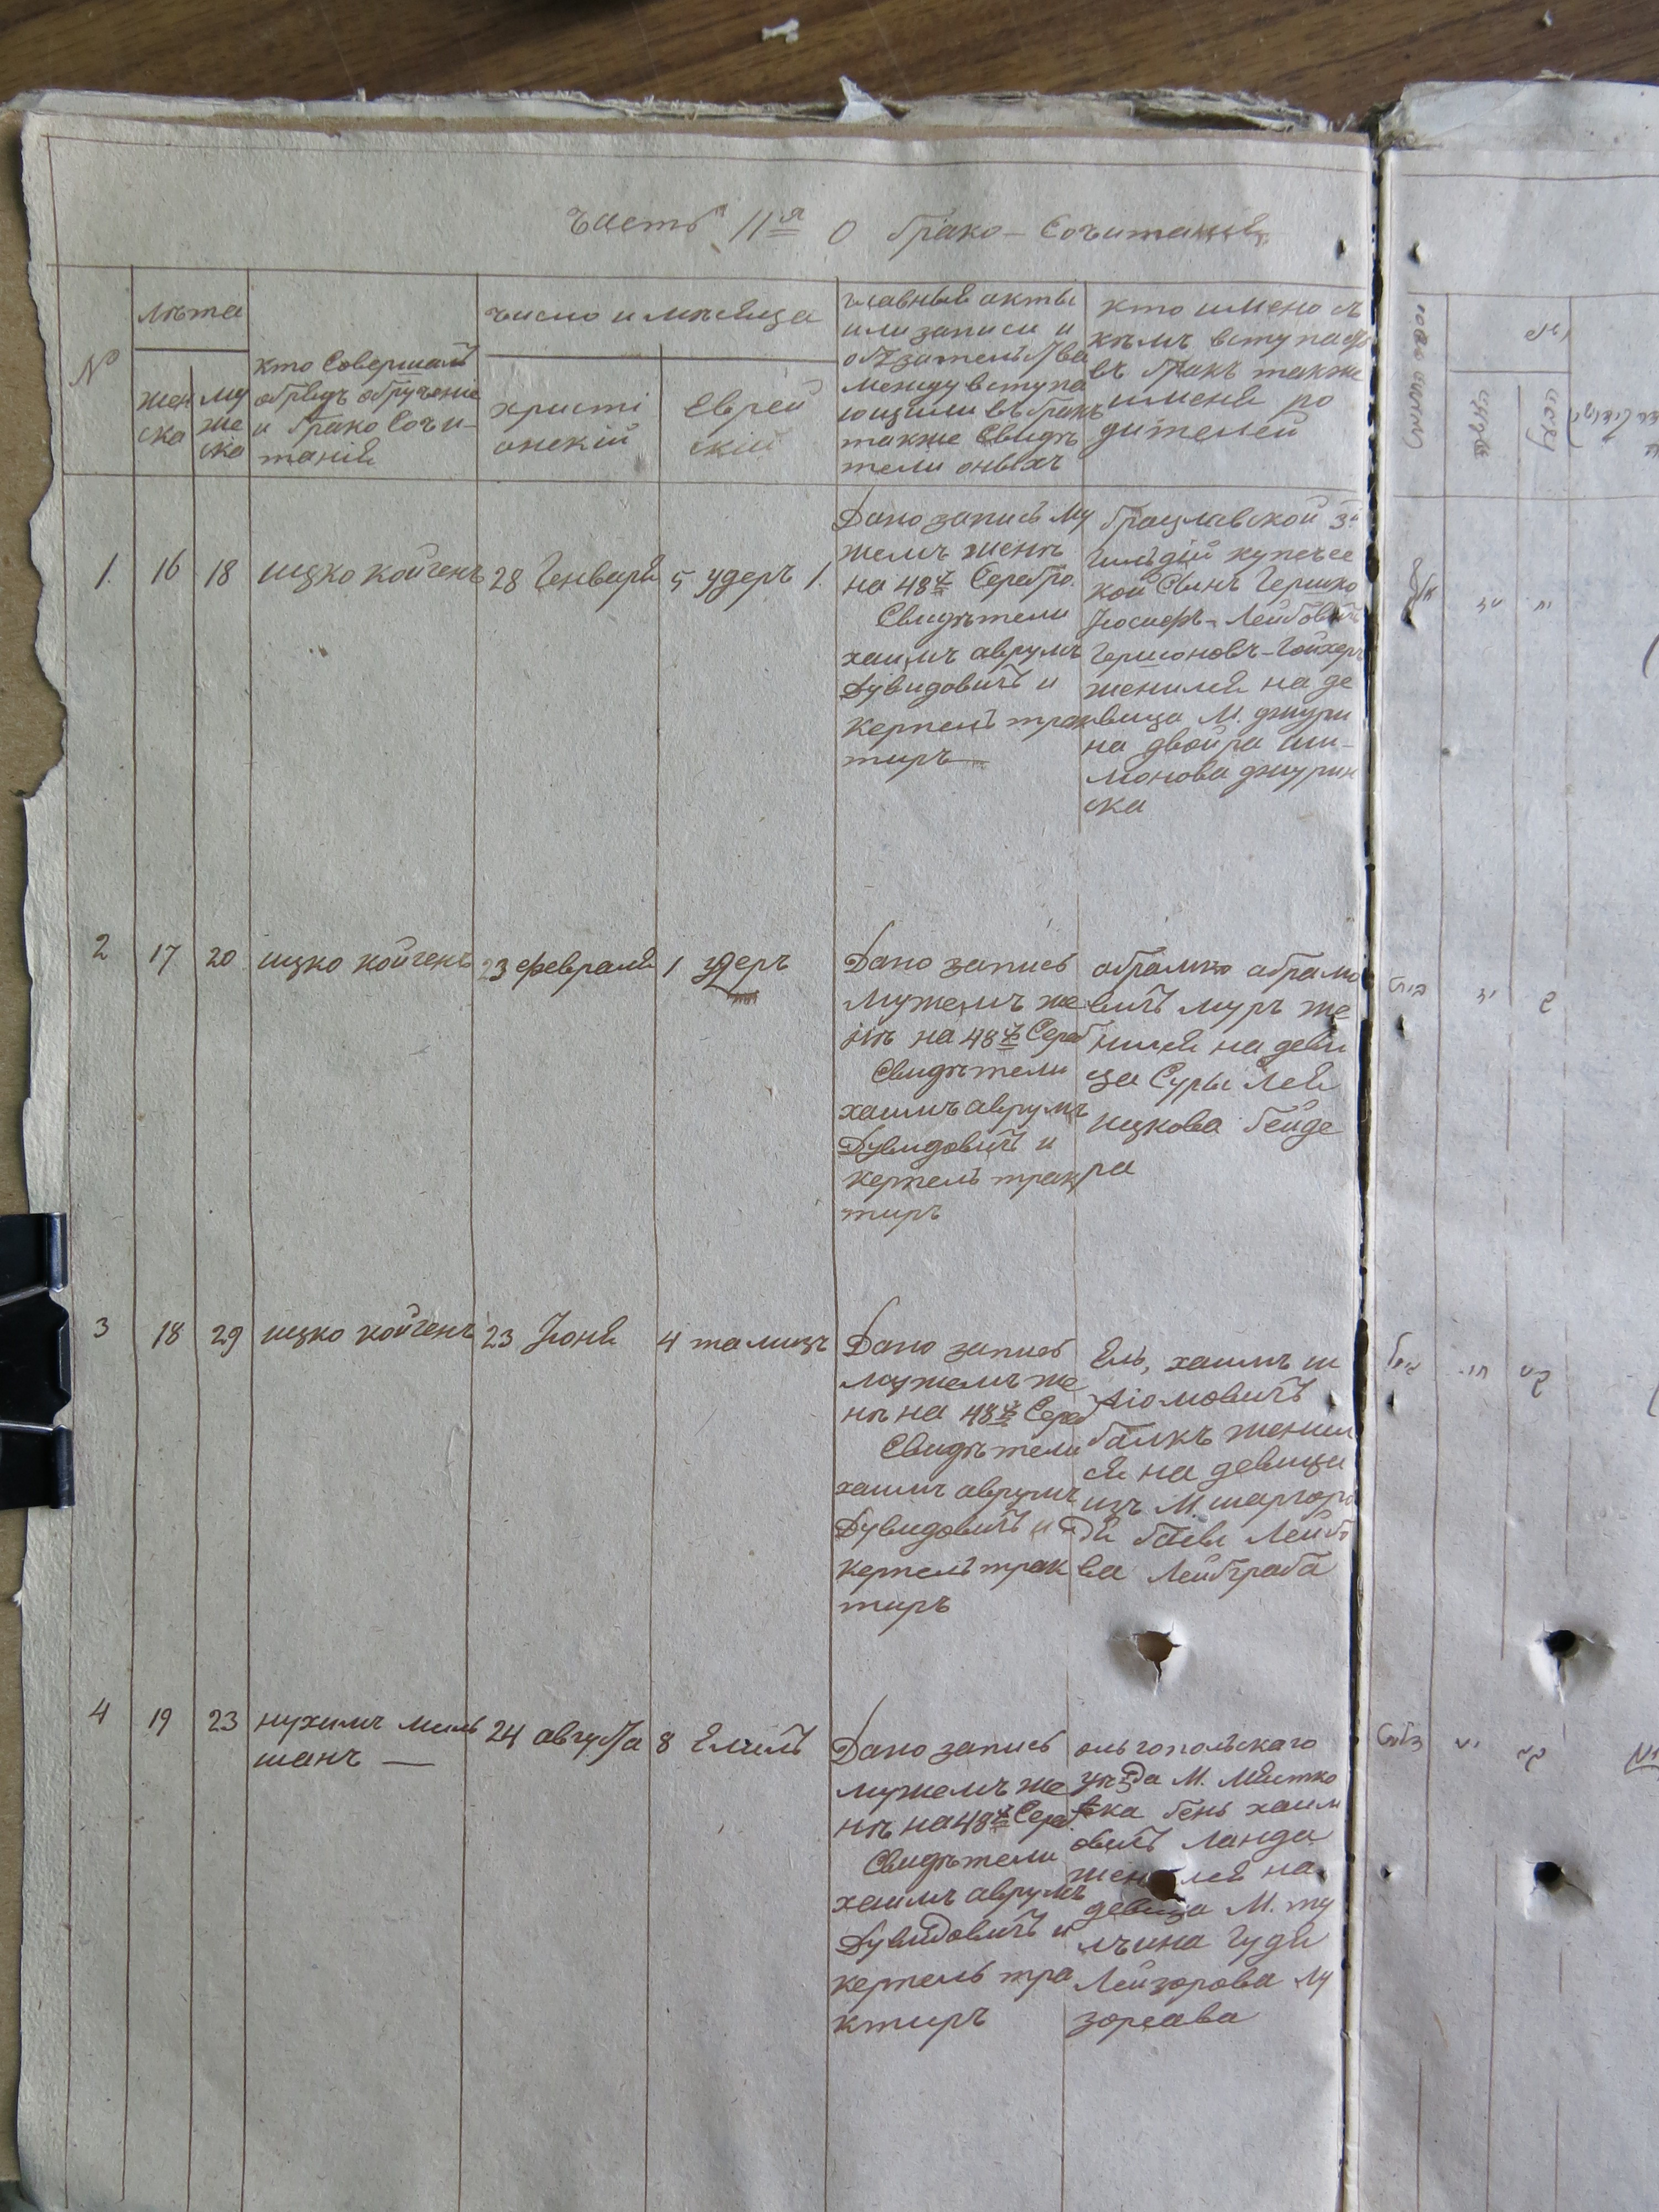 Часть IIя О брако-Сочитание
№
Лѣта
жен
ско
му
же
ско
кто Совершалъ
обрядъ обручение
и брако Сочи-
таній
число и мѣсяца
христі
онскій
Еврей
скій
главный акты
или записи и
обязательства
между вступа
ющими въ бракъ
также Свидѣ
тели оныхъ
кто имено съ
кѣмъ вступаетъ
въ бракъ также
именя ро
дителей
1.
16
18
ицко койгенъ
28 Генваря
5 удеръ 1.
Дано запись му
жемъ женѣ
на 48 Серебро.
Свидѣтели
хаимъ аврумъ
Дувидовичъ и
керпель трак
тиръ
брацлавской 3й
гильдій купечес
кой Сынъ Гершко
Іосифъ-Лейбовичъ
Гершоновъ-
женился на де
вица М. джури
на двойра ши-
монова джурин
ска
2
17
20
ицко койгенъ
23 февраля
1 удеръ
Дано запись
мужемъ же
нѣ на 48 Сереб
Свидѣтели
хаимъ аврумъ
Дувидовичъ и
керпель трак
тиръ
абрамко абрамо
вичъ муръ же
нился на деви
ца Суры Лея
ицкова бейде
ра
3
18
29
ицко койгенъ
23 Іюня
4 тамизъ
Дано запись
мужемъ же
нѣ на 48 Сереб
Свидѣтели
хаимъ аврумъ
Дувидовичъ и
керпель трак
тиръ
Ель, хаимъ ш
лiомовичъ
балкъ женил
ся на девица
изъ М. шаргоро
дя Лейбо
ва
4
19
23
нухимъ миль
шанъ
24 августа
8 Елилъ
Дано запись
мужемъ же
нѣ на 48 Сереб.
Свидѣтели
хаимъ аврумъ
Дувидовичъ и
керпель тра
ктиръ
ольгопольскаго
уѣзда М. Мястко
вка бень хаим
овичъ ланда
женился на
девица М. ту
льчина Гудя
Лейзорова лу